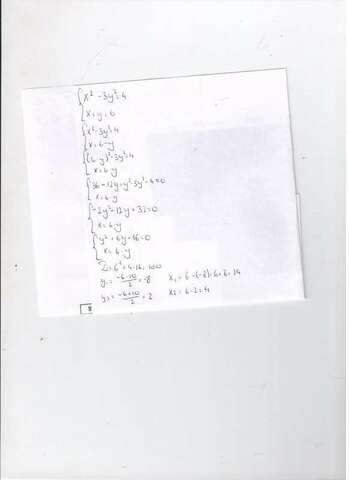 x² - 3y² = 4
x = y = 6
x² - 3y² = 4
x = 6 - y
(6 - y)² - 3y² = 4
x = 6 - y
36 - 12y + y² - 3y² - 4 = 0
x = 6 - y
-2y² - 12y + 32 = 0
x = 6 - y
y² + 6y - 16 = 0
x = 6 - y
D = 6² + 4·16 = 100
y₁ = (-6-10)/2 = -8 x₁ = 6-(-8) = 6+8 = 14
y₂ = (-6+10)/2 = 2 x₂ = 6-2 = 4